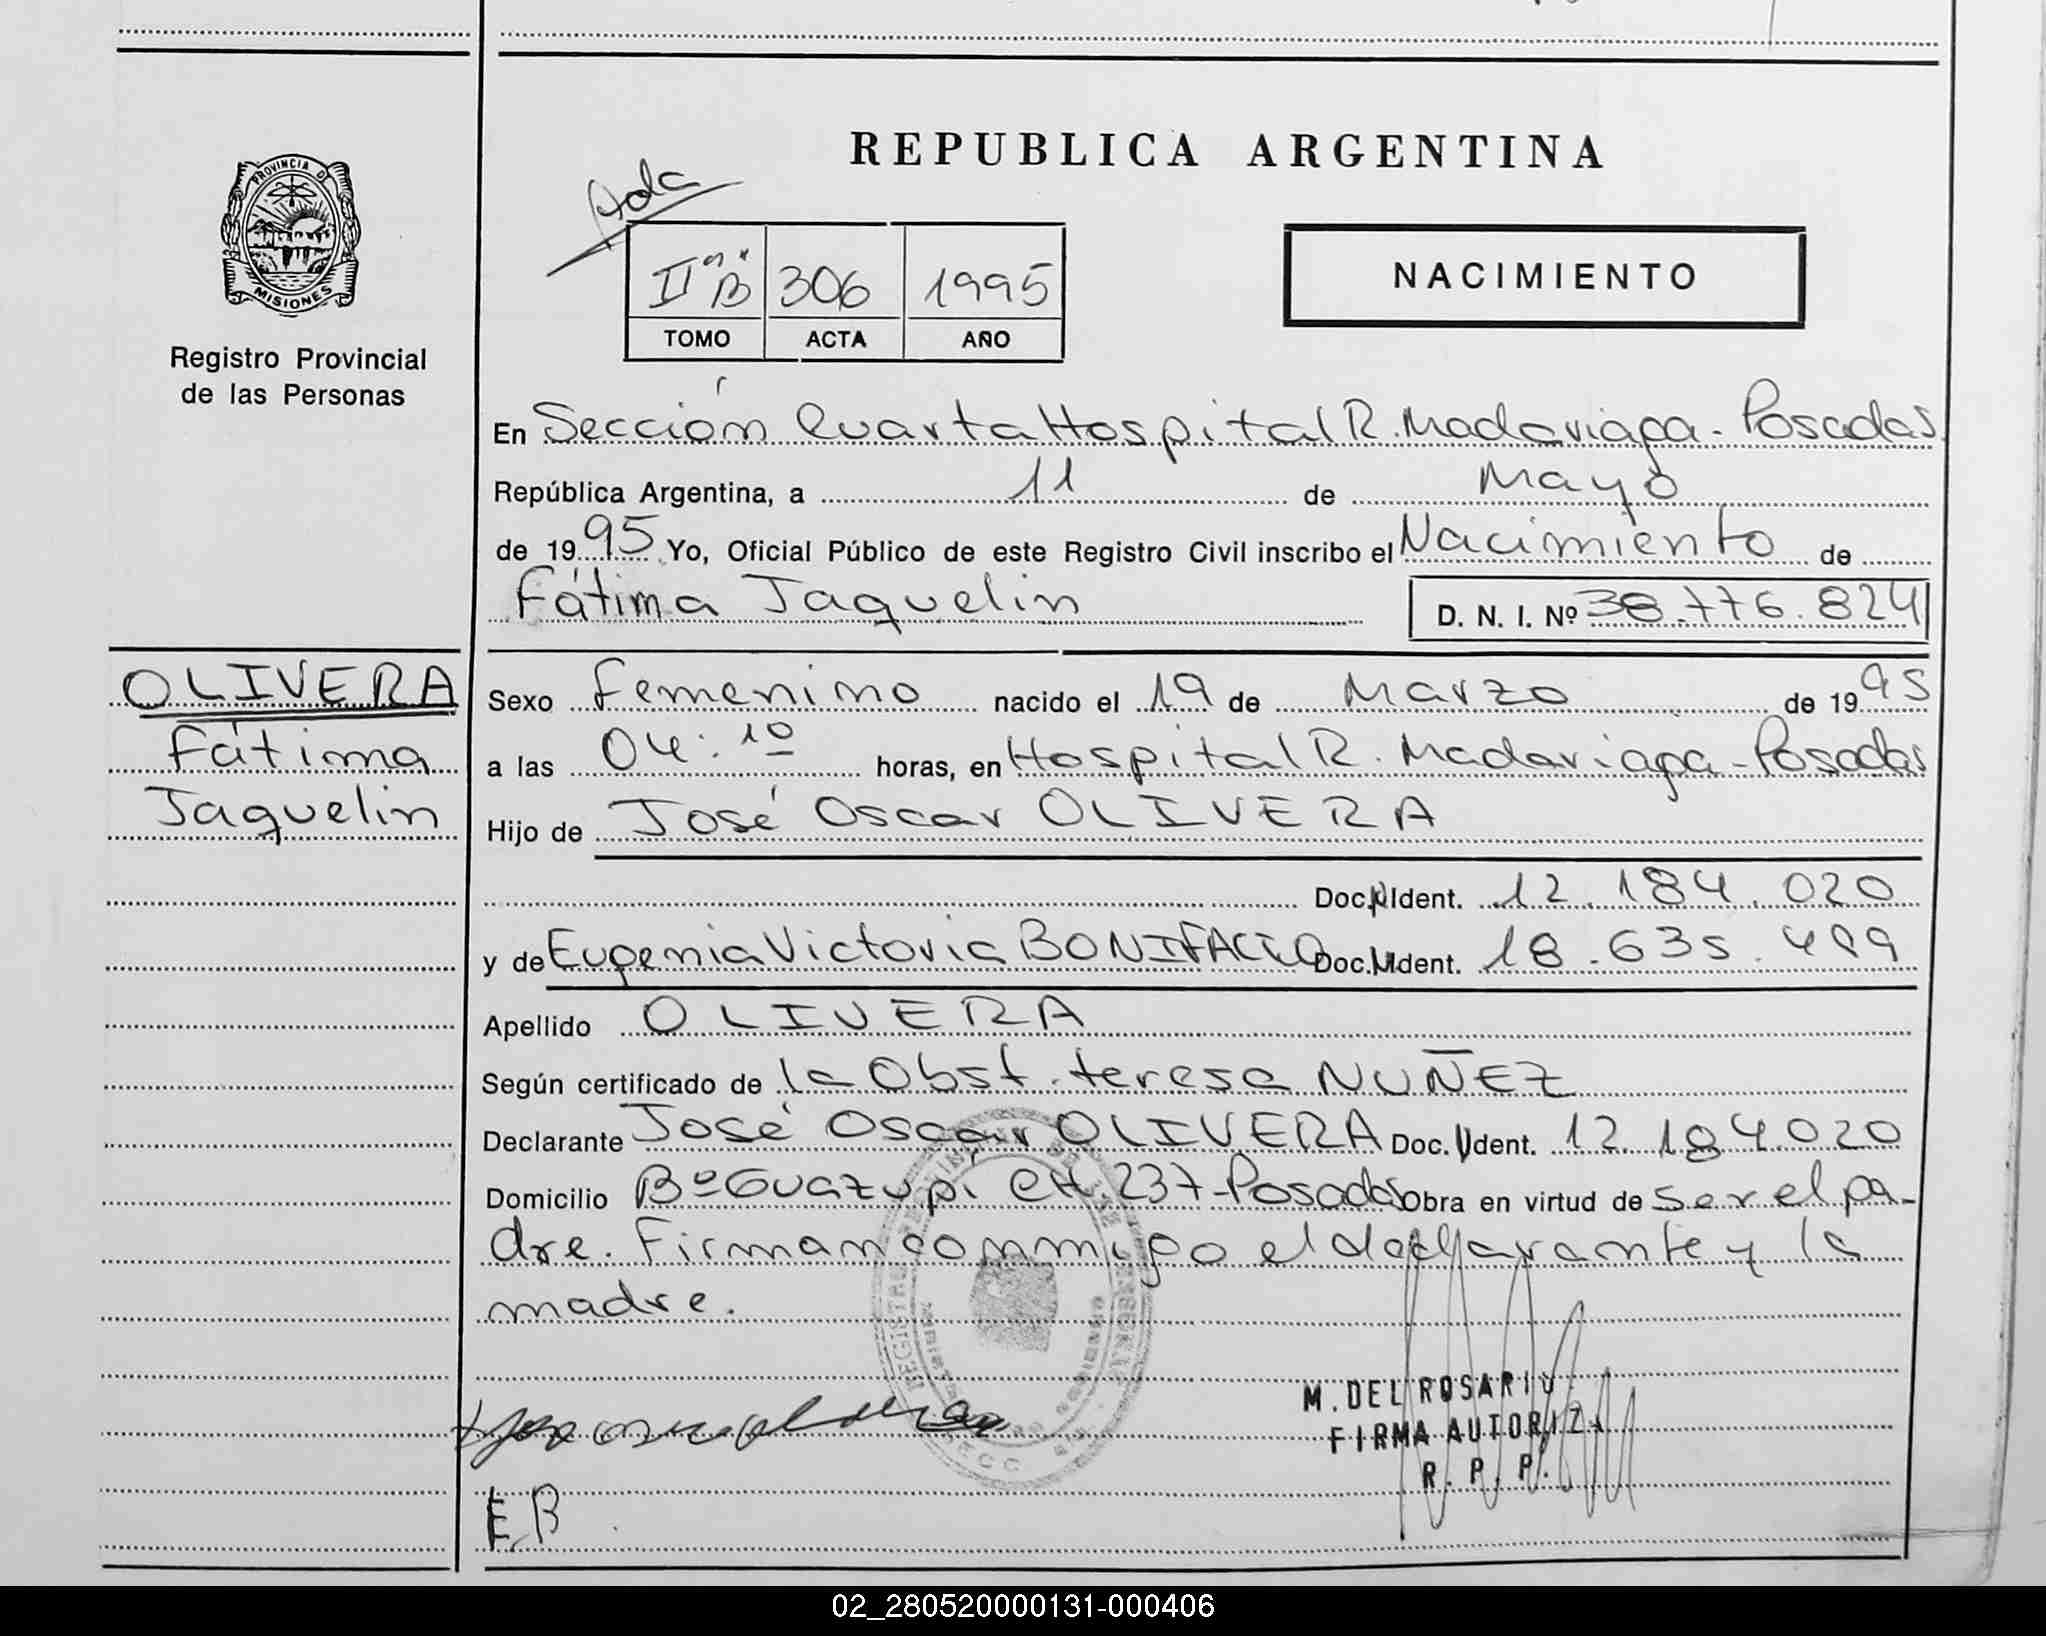 REPUBLICA ARGENTINA
PROVINCIA D
MISIONES
Registro Provincial
de las Personas
II "B" 306 1995
TOMO ACTA AÑO
NACIMIENTO
En Sección Cuarta Hospital R. Madariaga - Posadas
República Argentina, a 11 de Mayo
de 1995 Yo, Oficial Público de este Registro Civil inscribo el Nacimiento de
Fátima Jaquelin D. N. I. Nº 38.776.824
OLIVERA
Fátima
Jaquelin
Sexo Femenino nacido el 19 de Marzo de 1995
a las 04:10 horas, en Hospital R. Madariaga - Posadas
Hijo de José Oscar OLIVERA
Doc. Ident. 12.184.020
y de Eugenia Victoria BONIFACIO Doc. Ident. 18.635.499
Apellido OLIVERA
Según certificado de la Obst. teresa NUÑEZ
Declarante José Oscar OLIVERA Doc. Ident. 12.184.020
Domicilio Bº Guazupi CH. 237 - Posadas Obra en virtud de ser el pa-
dre. Firman conmigo el declarante y la
madre.
M. DEL ROSARIO
FIRMA AUTORIZA
R. P. P.
E.B
02_280520000131-000406